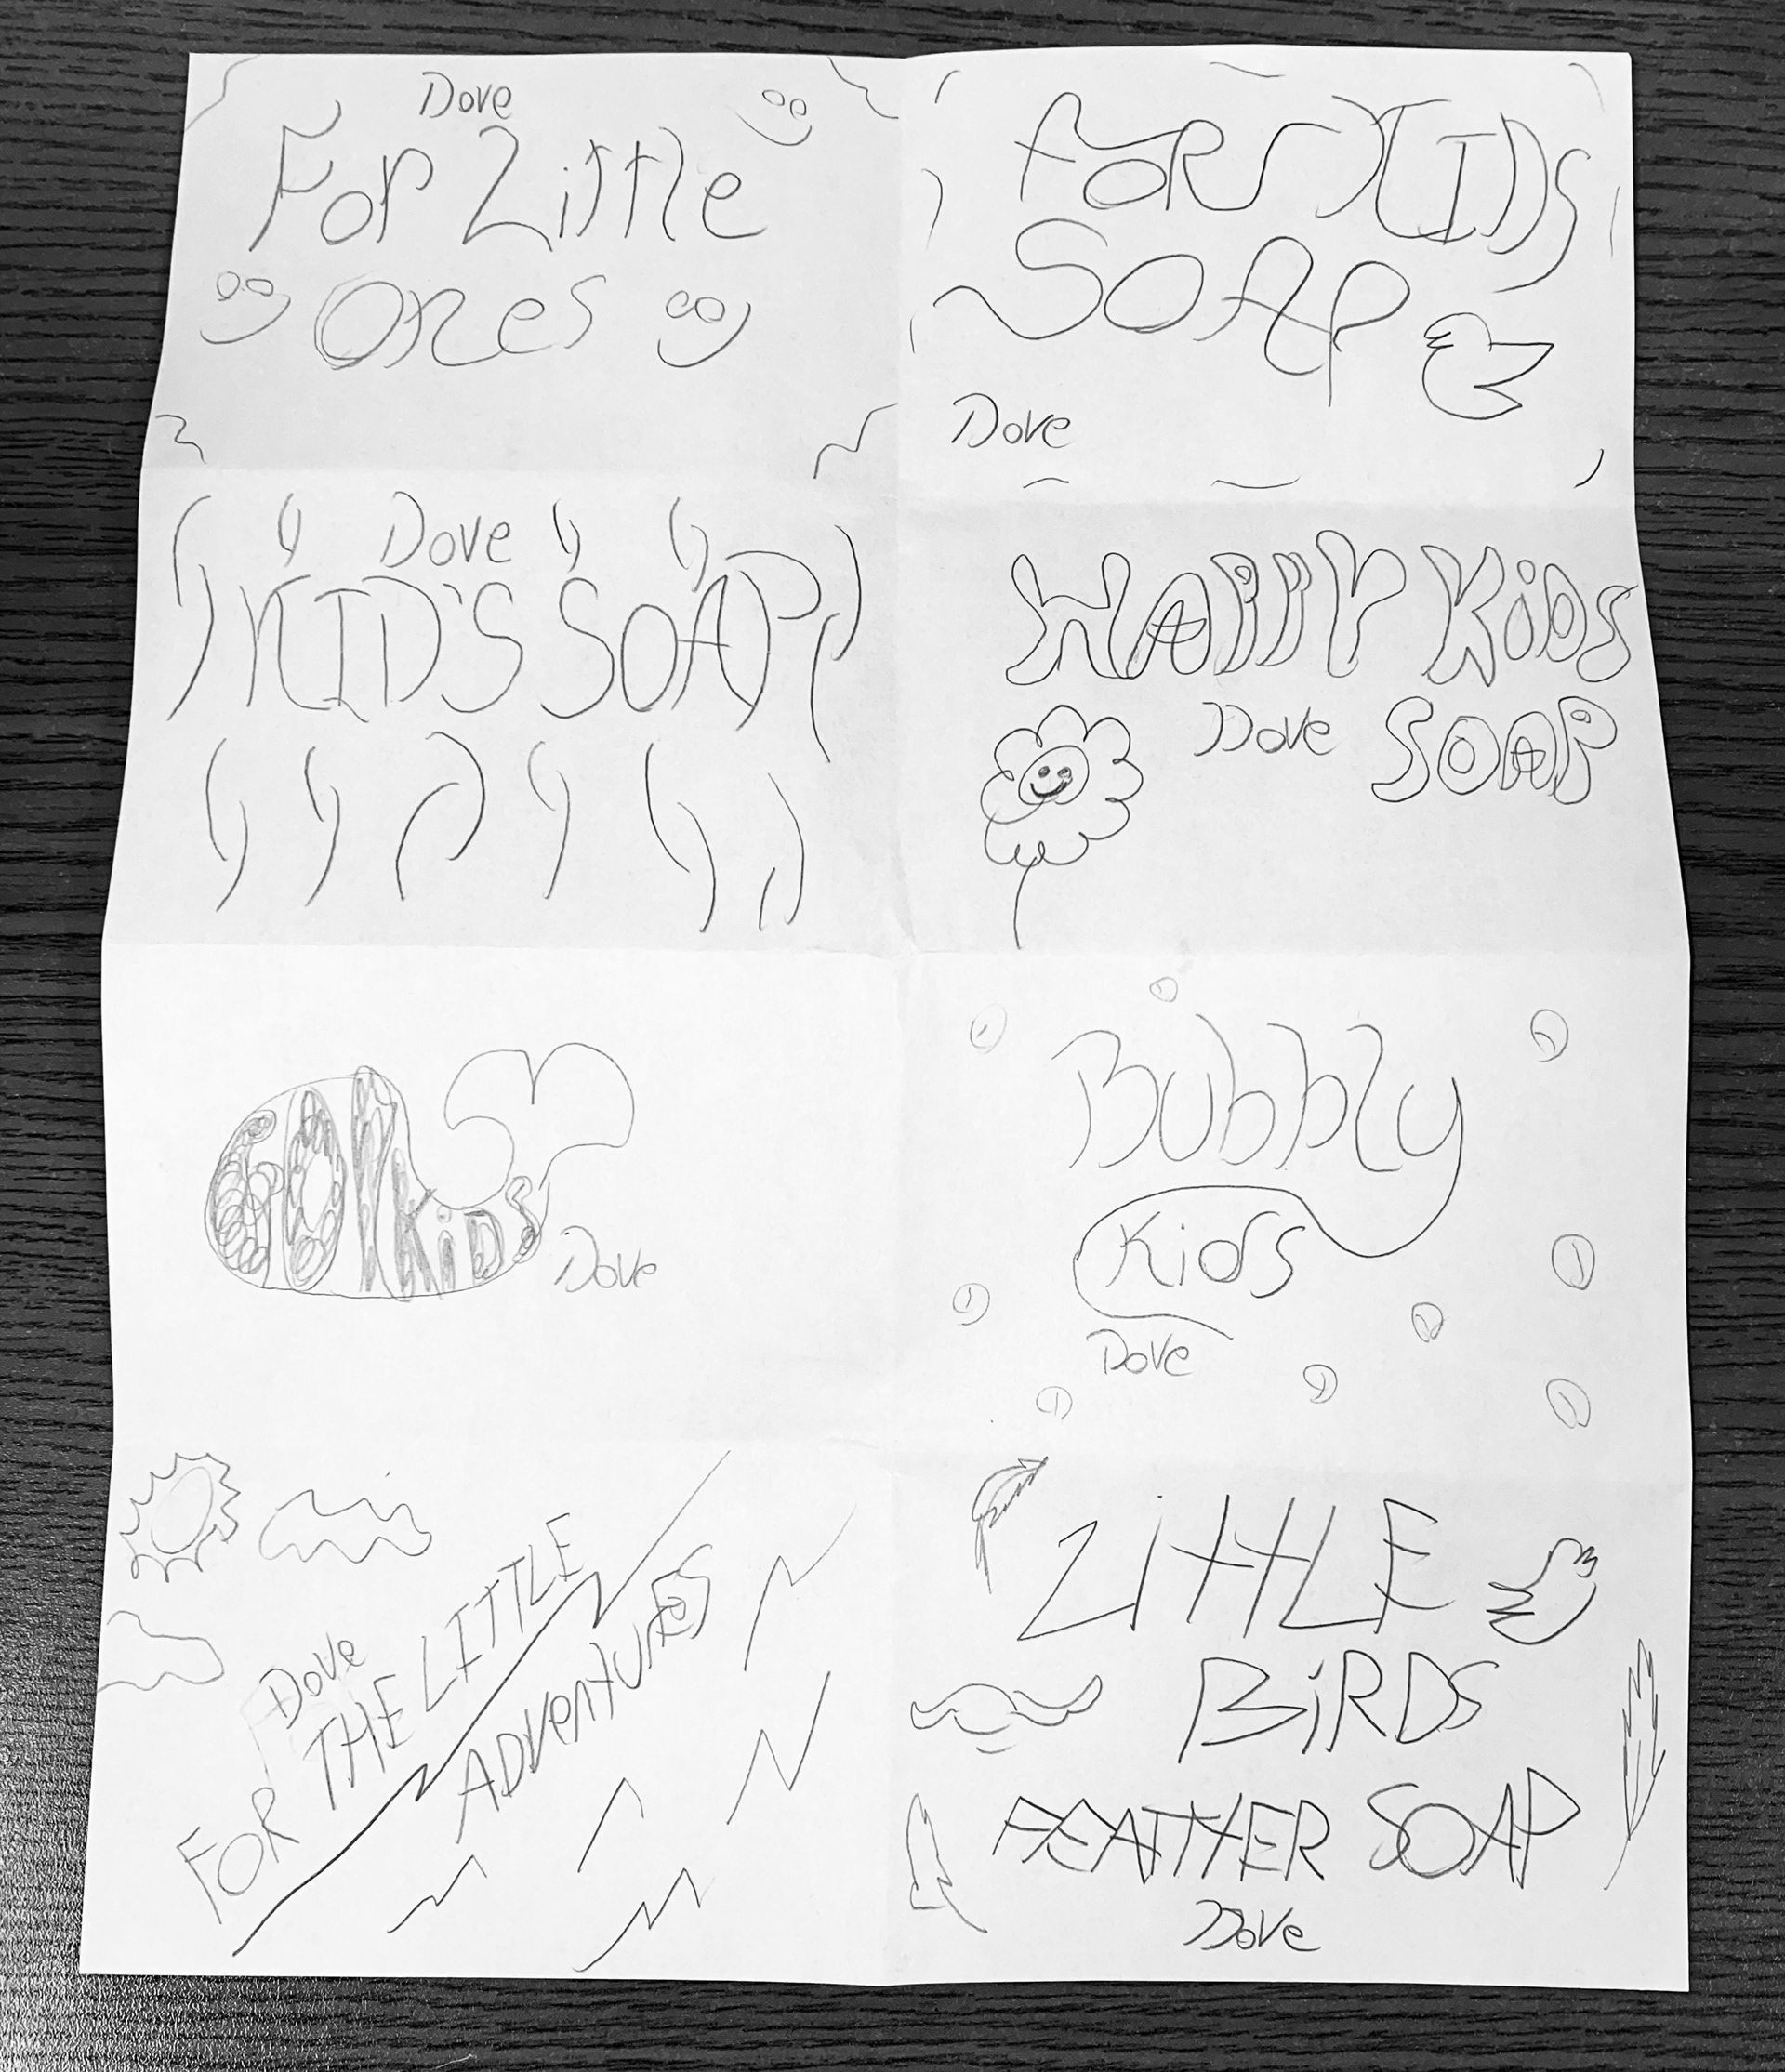 Dove
For Little
Ones
FORS KIDS
SOAP
Dove
Dove
KID'S SOAP
HAPPY KiDS
Dove SOAP
FOR KiDS
Dove
Bubbly
Kids
Dove
Dove
FOR THE LITTLE
ADVENTURES
LiTTLE
BiRDS
FEATHER SOAP
Dove